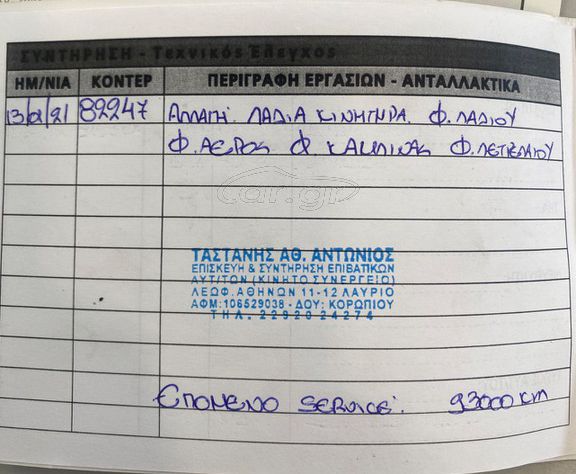 ΣΥΝΤΗΡΗΣΗ - Τεχνικός Έλεγχος
ΗΜ/ΝΙΑ ΚΟΝΤΕΡ ΠΕΡΙΓΡΑΦΗ ΕΡΓΑΣΙΩΝ - ΑΝΤΑΛΛΑΚΤΙΚΑ
13/2/21 82247 ΑΛΛΑΓΗ ΛΑΔΙΑ ΚΙΝΗΤΗΡΑ Φ.ΛΑΔΙΟΥ
Φ.ΑΕΡΟΣ Φ ΚΑΜΠΙΝΑΣ Φ.ΠΕΤΡΕΛΑΙΟΥ
car.gr
ΤΑΣΤΑΝΗΣ ΑΘ. ΑΝΤΩΝΙΟΣ
ΕΠΙΣΚΕΥΗ & ΣΥΝΤΗΡΗΣΗ ΕΠΙΒΑΤΙΚΩΝ
ΑΥΤ/ΤΩΝ (ΚΙΝΗΤΟ ΣΥΝΕΡΓΕΙΟ)
ΛΕΩΦ. ΑΘΗΝΩΝ 11-12 ΛΑΥΡΙΟ
ΑΦΜ: 106529038 - ΔΟΥ: ΚΟΡΩΠΙΟΥ
ΤΗΛ. 22920 24274
ΕΠΟΜΕΝΟ SERVICE: 93000 KM